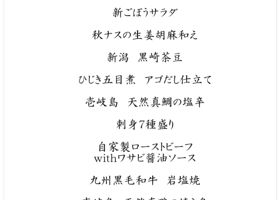 新ごぼうサラダ
秋ナスの生姜胡麻和え
新潟 黒崎茶豆
ひじき五目煮 アゴだし仕立て
壱岐島 天然真鯛の塩辛
刺身7種盛り
自家製ローストビーフ
withワサビ醤油ソース
九州黒毛和牛 岩塩焼